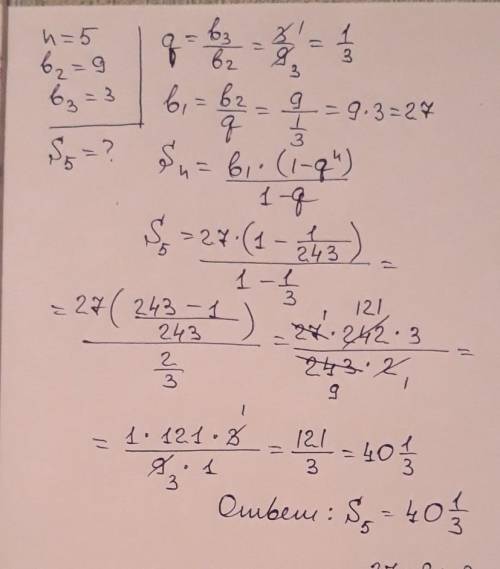 n = 5
b₂ = 9
b₃ = 3
S₅ = ?
q = b₃/b₂ = 3/9 = 1/3
b₁ = b₂/q = 9/(1/3) = 9·3 = 27
Sₙ = b₁·(1-qⁿ)/(1-q)
S₅ = 27·(1 - 1/243)/(1 - 1/3) =
= 27((243-1)/243)/(2/3) = 27·242·3/(243·2) =
1 121
9 1
= 1·121·3/(9·1) = 121/3 = 40 1/3
Ответ: S₅ = 40 1/3